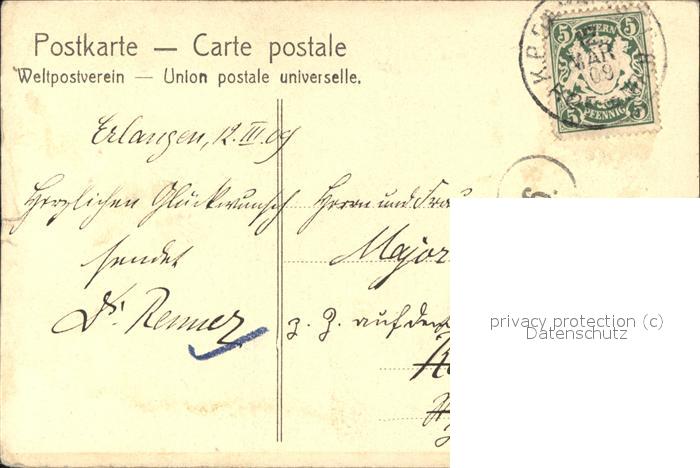 Postkarte — Carte postale
Weltpostverein — Union postale universelle.
5 BAYERN 5
5 PFENNIG 5
MAR
09
Erlangen, 12. III. 09
Herzlichen Glückwunsch
sendet
Dr. Renner
Herrn und Frau
Major
z. Z. auf dem
privacy protection (c)
Datenschutz